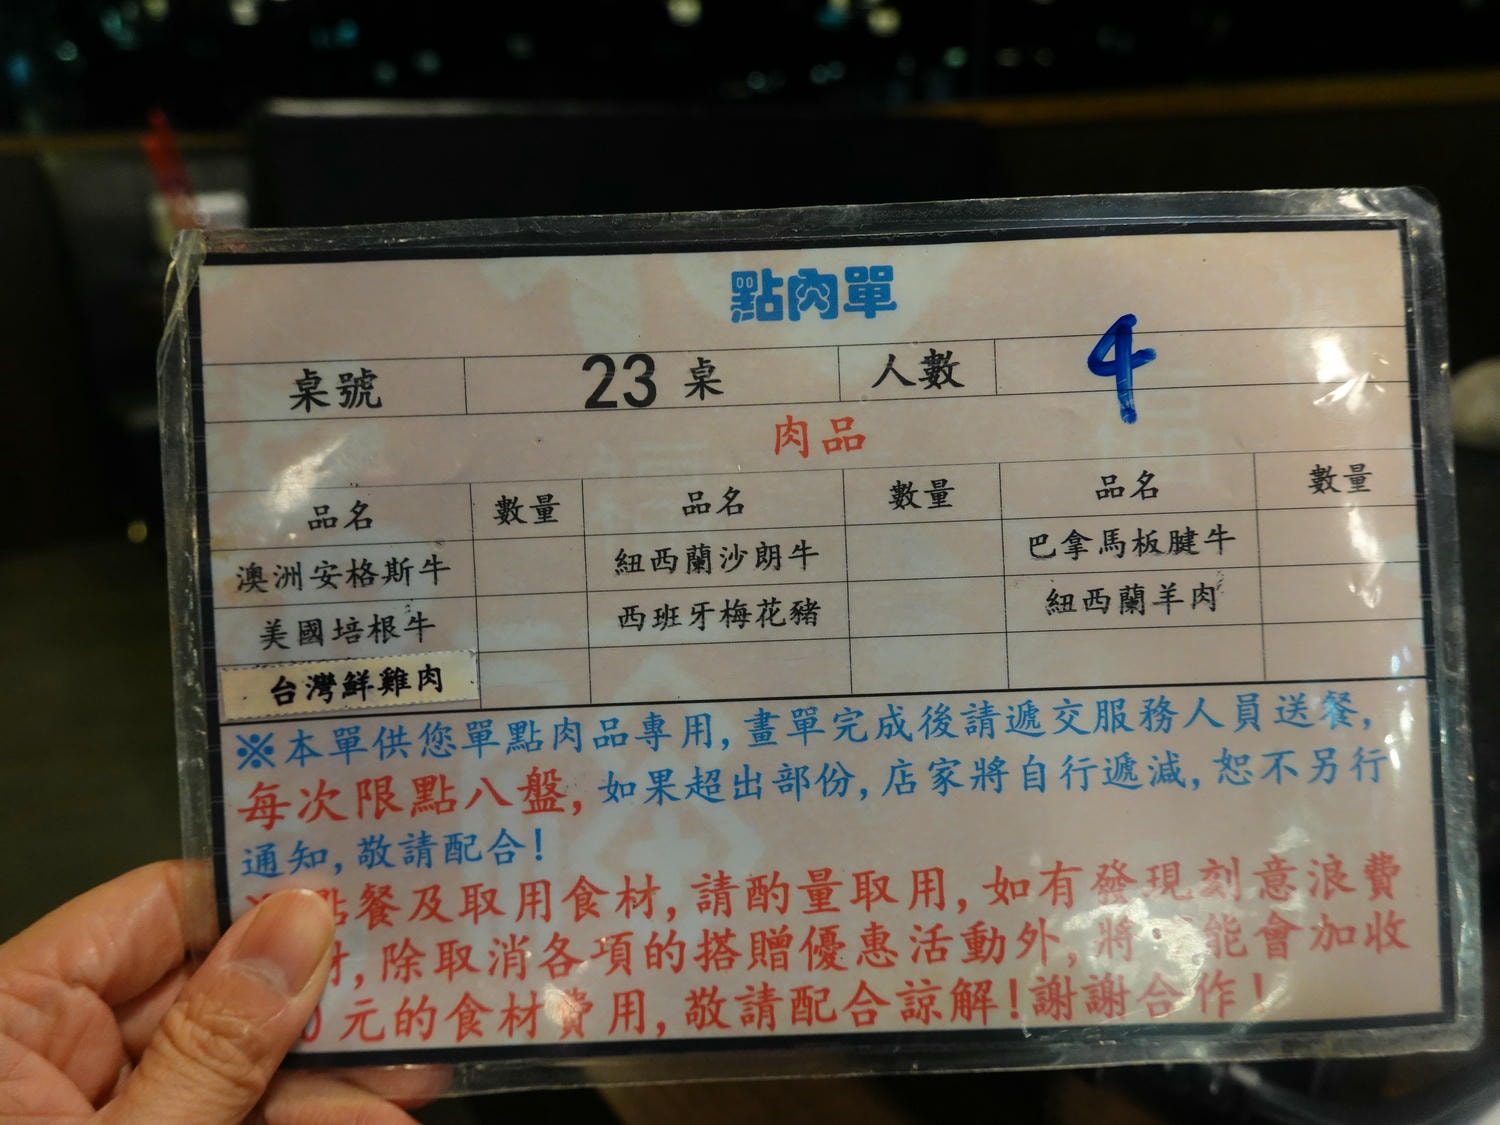 點肉單
桌號 23 桌 人數 4
肉品
品名 數量 品名 數量 品名 數量
澳洲安格斯牛 紐西蘭沙朗牛 巴拿馬板腱牛
美國培根牛 西班牙梅花豬 紐西蘭羊肉
台灣鮮雞肉
※本單供您單點肉品專用,畫單完成後請遞交服務人員送餐,
每次限點八盤,如果超出部份,店家將自行遞減,恕不另行
通知,敬請配合!
點餐及取用食材,請酌量取用,如有發現刻意浪費
,除取消各項的搭贈優惠活動外,將 能會加收
0元的食材費用,敬請配合諒解!謝謝合作!